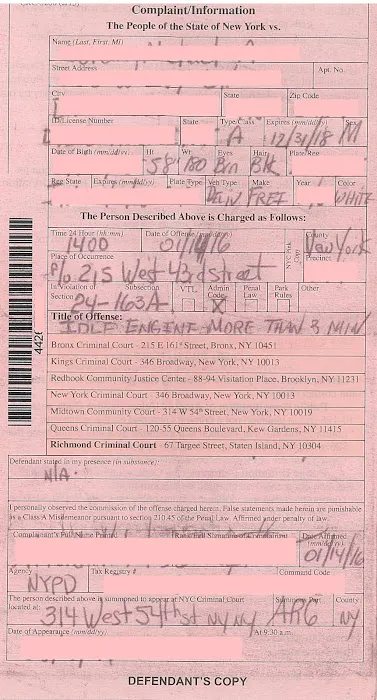 Complaint/Information
The People of the State of New York vs.
Name (Last, First, MI)
Street Address Apt. No.
City State Zip Code
ID/License Number State Type/Class Expires (mm/dd/yy) Sex
A 12/31/18 M
Date of Birth (mm/dd/yy) Ht. Wt. Eyes Hair Plate/Reg
58 180 Brn Blk
Reg State Expires (mm/dd/yy) Plate Type Veh Type Make Year Color
FREE WHITE
The Person Described Above is Charged as Follows:
Time 24 Hour (hh:mm) Date of Offense (mm/dd/yy) County
1400 01/14/16 New York
Place of Occurrence Precinct
P/O 215 West 43rd street
In Violation of Section Subsection VTL Admin Code Penal Law Park Rules Other
24-163A X
Title of Offense:
IDLE ENGINE MORE THAN 3 MIN
Bronx Criminal Court - 215 E 161st Street, Bronx, NY 10451
Kings Criminal Court - 346 Broadway, New York, NY 10013
Redhook Community Justice Center - 88-94 Visitation Place, Brooklyn, NY 11231
New York Criminal Court - 346 Broadway, New York, NY 10013
Midtown Community Court - 314 W 54th Street, New York, NY 10019
Queens Criminal Court - 120-55 Queens Boulevard, Kew Gardens, NY 11415
Richmond Criminal Court - 67 Targee Street, Staten Island, NY 10304
4426
Defendant stated in my presence (in substance):
N/A.
I personally observed the commission of the offense charged herein. False statements made herein are punishable
as a Class A Misdemeanor pursuant to section 210.45 of the Penal Law. Affirmed under penalty of law.
Complainant's Full Name Printed Rank/Full Signature of Complainant Date Affirmed (mm/dd/yy)
01/14/16
Agency Tax Registry # Command Code
NYPD
The person described above is summoned to appear at NYC Criminal Court Summons Part County
located at: 314 West 54th st NY NY AR6 NY
Date of Appearance (mm/dd/yy) At 9:30 a.m.
DEFENDANT'S COPY